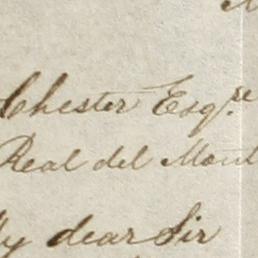 Chester Esqre
Real del Mont
My dear Sir